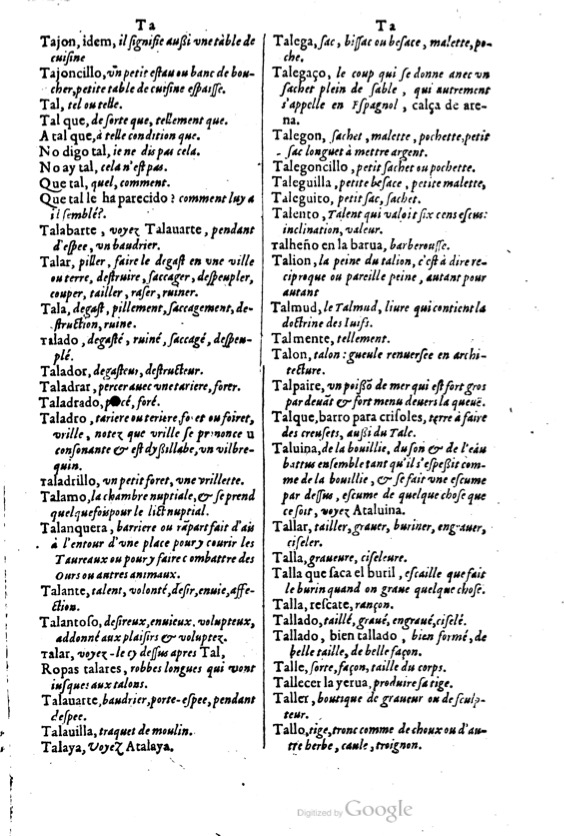 Ta
Tajon, idem, il signifie außi vne table de
cuisine
Tajoncillo, vn petit estau ou banc de bou-
cher, petite table de cuisine espaisse.
Tal, tel ou telle.
Tal que, de sorte que, tellement que.
A tal que, à telle condition que.
No digo tal, ie ne dis pas cela.
No ay tal, cela n'est pas.
Que tal, quel, comment.
Que tal le ha parecido? comment luy a
il semblé?.
Talabarte, voyez Talauarte, pendant
d'espee, vn baudrier.
Talar, piller, faire le degast en vne ville
ou terre, destruire, saccager, despeupler,
couper, tailler, raser, ruiner.
Tala, degast, pillement, saccagement, de-
struction, ruine.
Talado, degasté, ruiné, saccagé, despeu-
plé.
Talador, degasteur, destructeur.
Taladrar, percer auec vne tariere, forer.
Taladrado, foré.
Taladro, tariere ou teriere, foret ou foiret,
vrille, notez que vrille se prononce u
consonante & est dyssillabe, un vilbre-
quin.
Taladrillo, un petit foret, vne vrillette.
Talamo, la chambre nuptiale, & se prend
quelquefois pour le lict nuptial.
Talanquera, barriere ou rāpart fait d'ais
à l'entour d'vne place pour y courir les
Taureaux ou pour y faire combattre des
Ours ou autres animaux.
Talante, talent, volonté, desir, enuie, affe-
ction.
Talantoso, desireux, enuieux, volupteux,
addonné aux plaisirs & voluptez.
Talar, voyez-le cy dessus apres Tal,
Ropas talares, robbes longues qui vont
iusques aux talons.
Talauarte, baudrier, porte-espee, pendant
d'espee.
Talauilla, traquet de moulin.
Talaya, Voyez Atalaya.
Ta
Talega, sac, bissac ou besace, malette, po-
che.
Talegaço, le coup qui se donne auec vn
sachet plein de sable, qui autrement
s'appelle en Espagnol, calça de are-
na.
Talegon, sachet, malette, pochette, petit
sac longuet à mettre argent.
Talegoncillo, petit sachet ou pochette.
Taleguilla, petite besace, petite malette,
Taleguito, petit sac, sachet.
Talento, Talent qui valoit six cens escus:
inclination, valeur.
Talheño en la barua, barberousse.
Talion, la peine du talion, c'est à dire re-
ciproque ou pareille peine, autant pour
autant
Talmud, le Talmud, liure qui contient la
doctrine des Iuifs.
Talmente, tellement.
Talon, talon: gueule renuersee en archi-
tecture.
Talpaire, un poißō de mer qui est fort gros
par deuāt & fort menu deuers la queuë.
Talque, barro para crisoles, terre à faire
des creusets, außi du Talc.
Taluina, de la bouillie, du son & de l'eau
battus ensemble tant qu'il s'espeßit com-
me de la bouillie, & se fait vne escume
par dessus, escume de quelque chose que
ce soit, voyez Ataluina.
Tallar, tailler, grauer, buriner, engrauer,
ciseler.
Talla, graueure, ciseleure.
Talla que saca el buril, escaille que fait
le burin quand on graue quelque chose.
Talla, rescate, rançon.
Tallado, taillé, graué, engraué, ciselé.
Tallado, bien tallado, bien formé, de
belle taille, de belle façon.
Talle, sorte, façon, taille du corps.
Tallecer la yerua, produire sa tige.
Taller, boutique de graueur ou de sculp-
teur.
Tallo, tige, tronc comme de choux ou d'au-
tre herbe, caule, troignon.
Digitized by Google